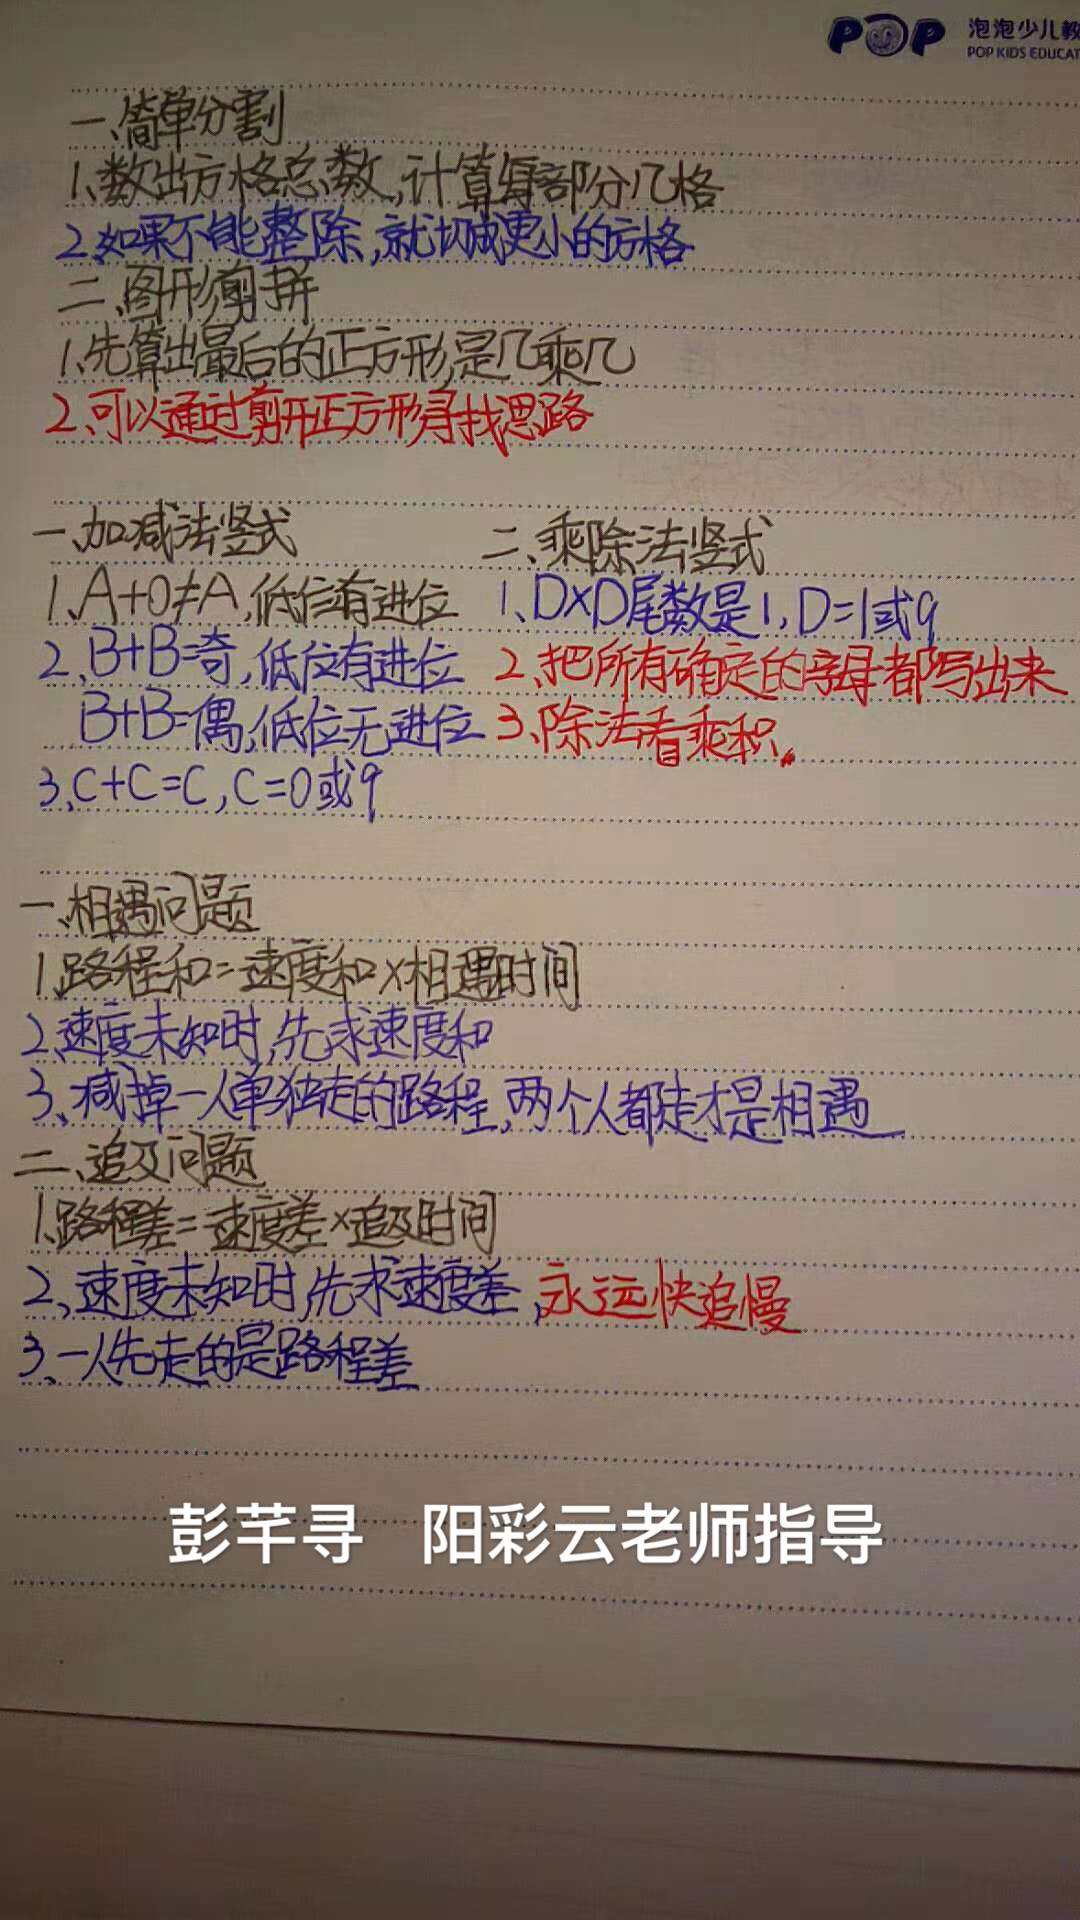 POP 泡泡少儿教
POP KIDS EDUCAT
一、简单分割
1、数出方格总数,计算每部分几格
2、如果不能整除,就切成更小的方格
二、图形剪拼
1、先算出最后的正方形,是几乘几
2、可以通过剪开正方形寻找思路
一、加减法竖式
1、A+0≠A,低位有进位
2、B+B=奇,低位有进位
B+B=偶,低位无进位
3、C+C=C,C=0或9
二、乘除法竖式
1、D×D尾数是1,D=1或9
2、把所有确定的字母都写出来
3、除法看乘积。
一、相遇问题
1、路程和=速度和×相遇时间
2、速度未知时,先求速度和
3、减掉一人单独走的路程,两个人都走才是相遇
二、追及问题
1、路程差=速度差×追及时间
2、速度未知时,先求速度差,永远快追慢
3、一人先走的是路程差
彭芊寻 阳彩云老师指导